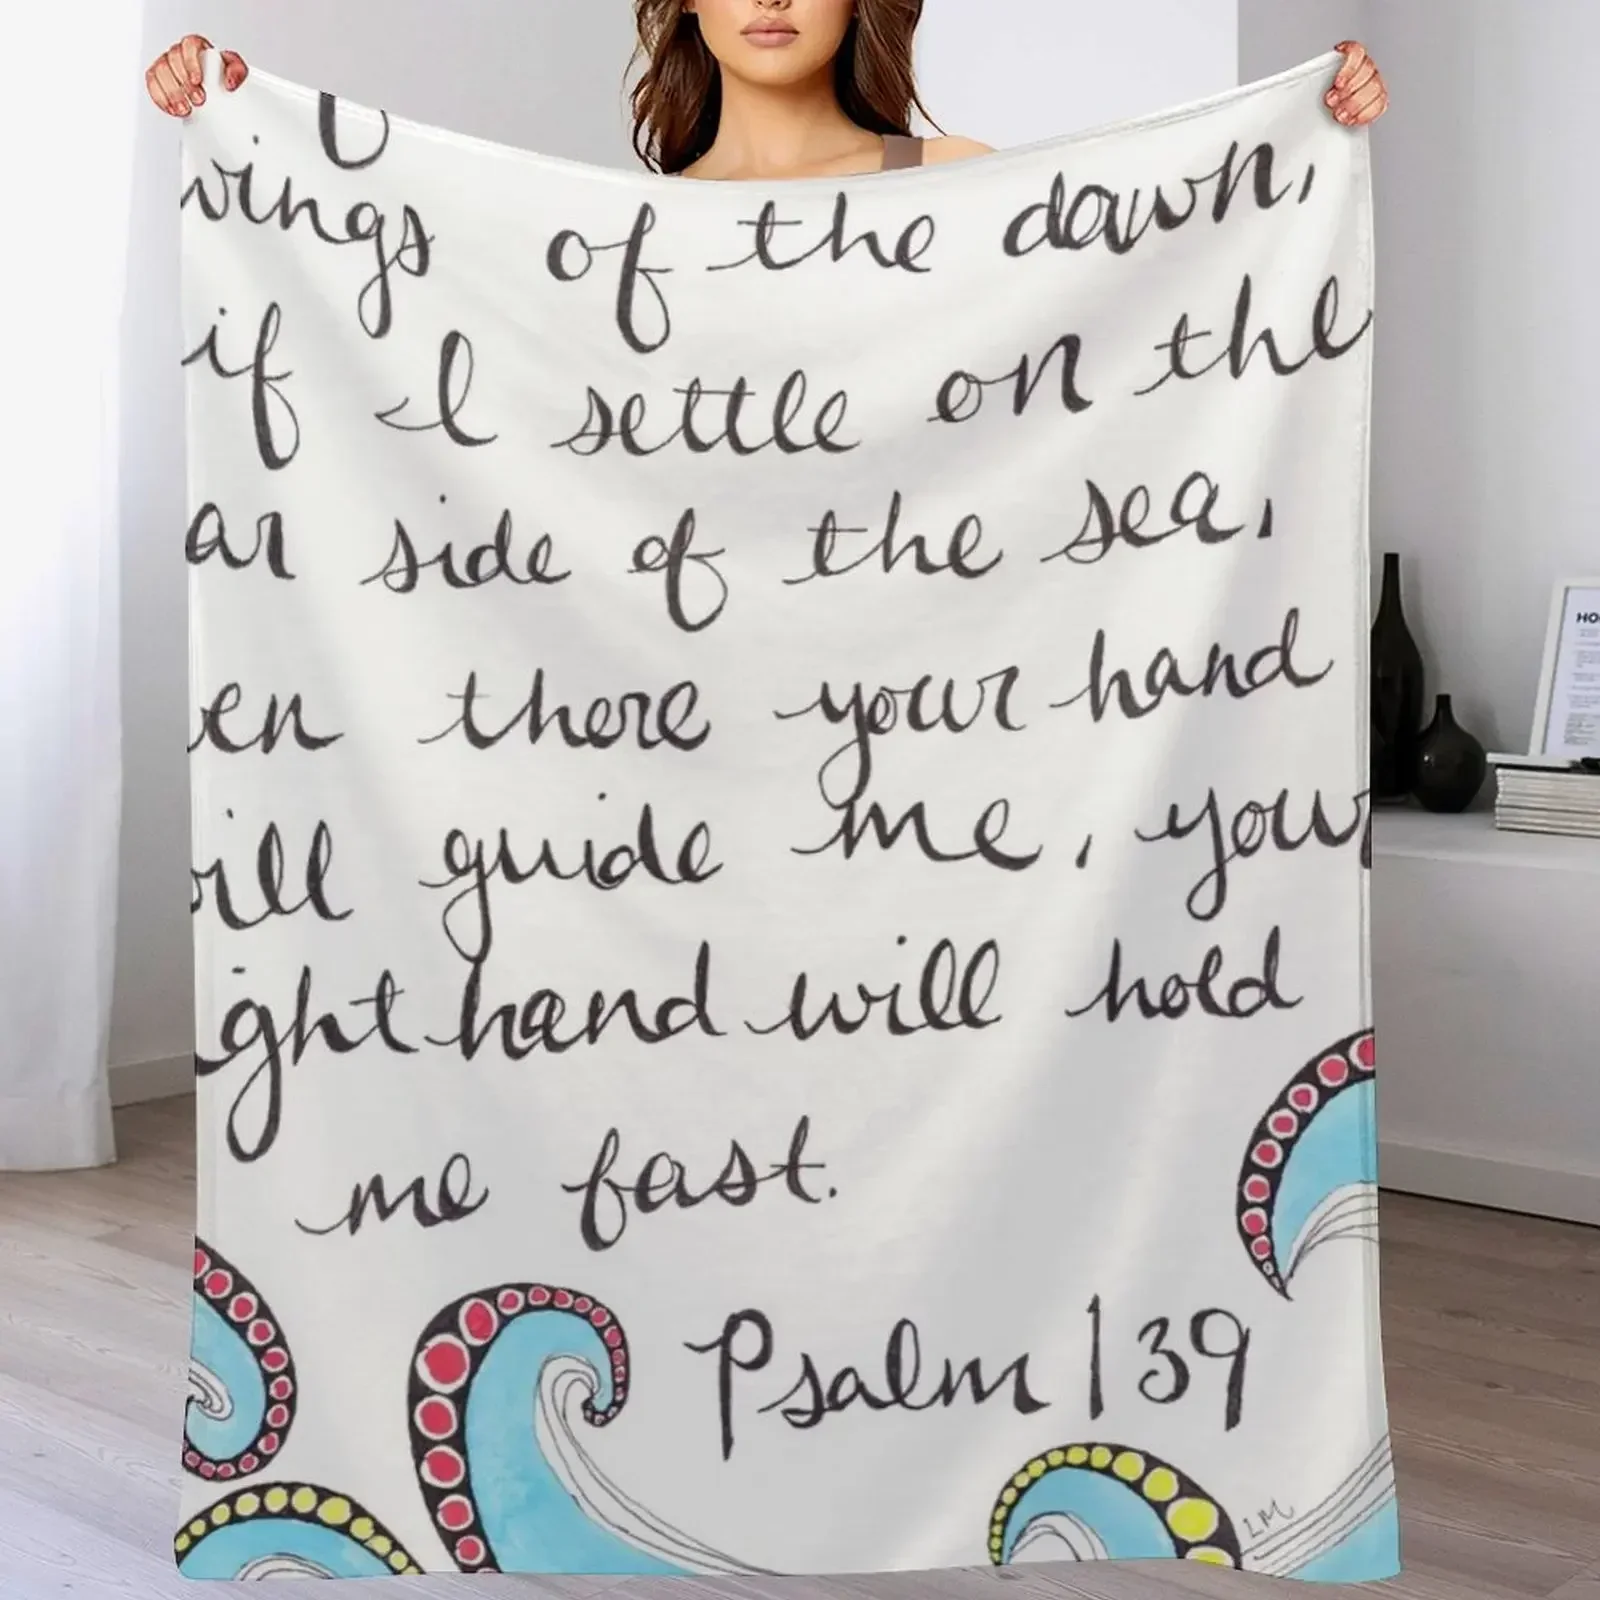 wings of the dawn,
if I settle on the
ar side of the sea,
en there your hand
ill guide me, your
ight hand will hold
me fast.
Psalm 139
LM
HO